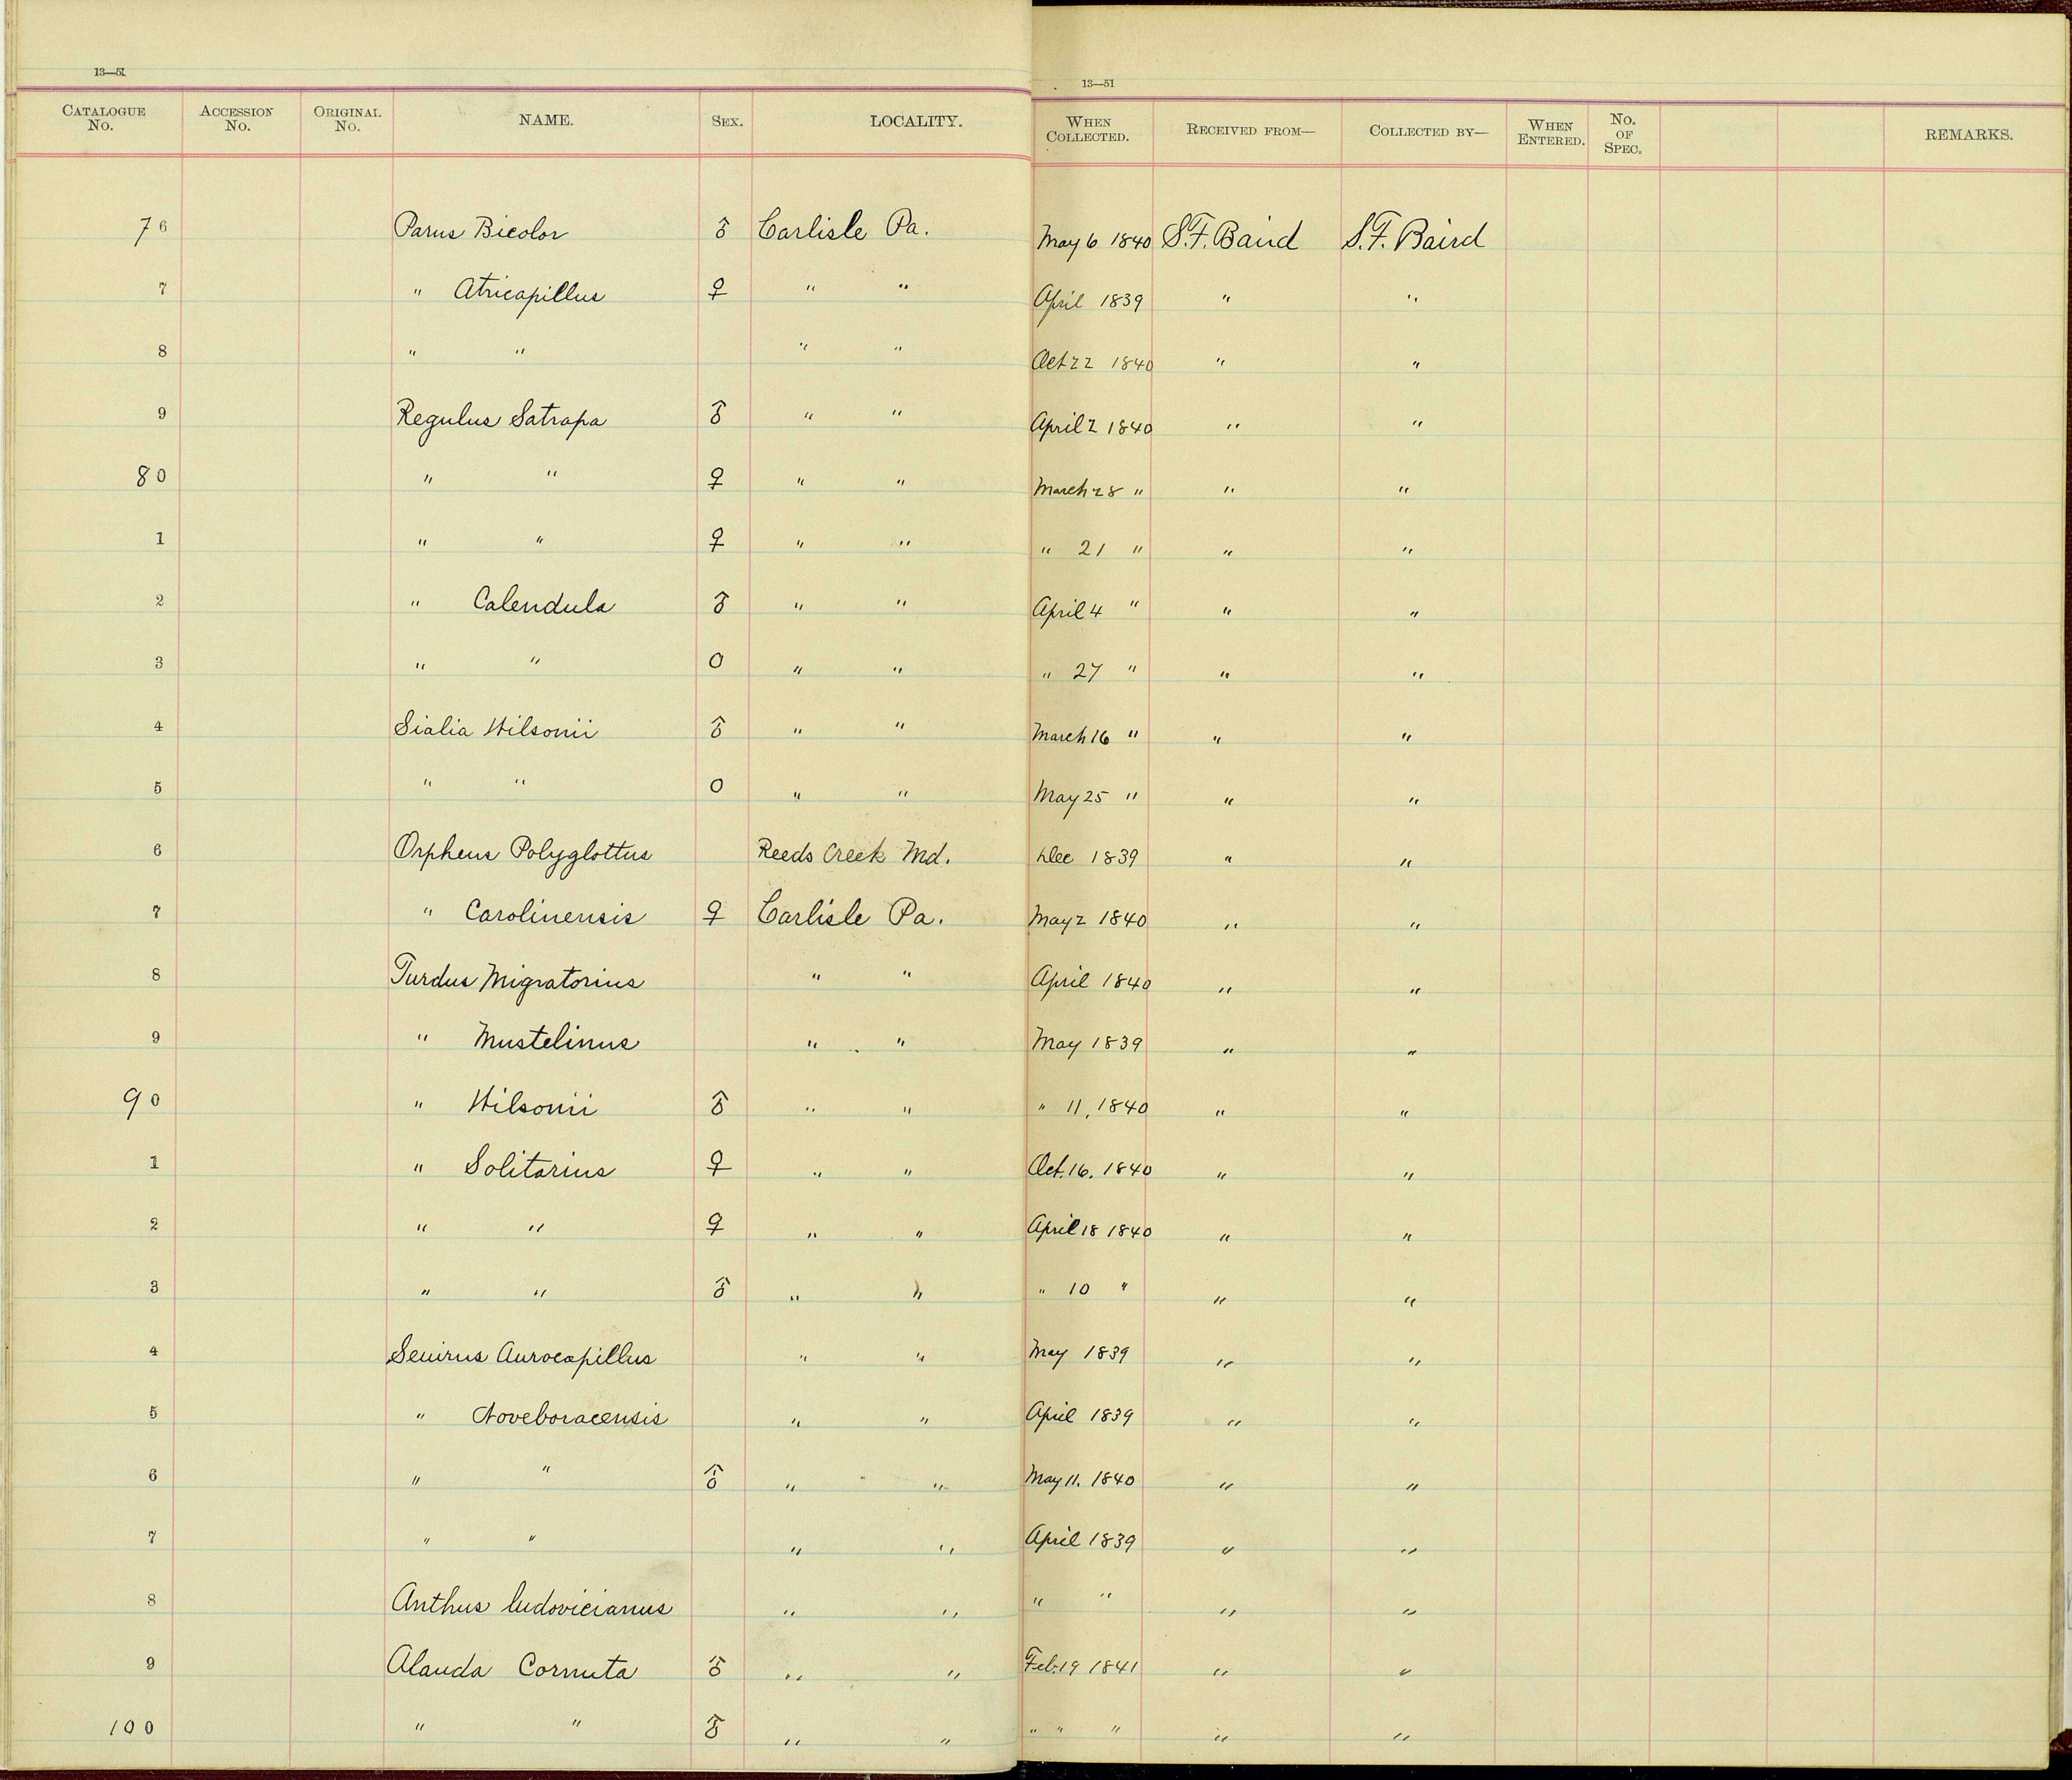 13—51
13—51
CATALOGUE No. ACCESSION No. ORIGINAL No. NAME. SEX. LOCALITY. WHEN COLLECTED. RECEIVED FROM— COLLECTED BY— WHEN ENTERED. No. OF SPEC. REMARKS.
76 Parus Bicolor ♂ Carlisle Pa. May 6 1840 S.F. Baird S.F. Baird
7 " Atricapillus ♀ " " April 1839 " "
8 " " " " Oct 22 1840 " "
9 Regulus Satrapa ♂ " " April 2 1840 " "
80 " " ♀ " " March 28 " " "
1 " " ♀ " " " 21 " " "
2 " Calendula ♂ " " April 4 " " "
3 " " O " " " 27 " " "
4 Sialia Wilsonii ♂ " " March 16 " " "
5 " " O " " May 25 " " "
6 Orpheus Polyglottus Reeds Creek Md. Dec 1839 " "
7 " Carolinensis ♀ Carlisle Pa. May 2 1840 " "
8 Turdus Migratorius " " April 1840 " "
9 " Mustelinus " " May 1839 " "
90 " Wilsonii ♂ " " " 11, 1840 " "
1 " Solitarius ♀ " " Oct. 16. 1840 " "
2 " " ♀ " " April 18 1840 " "
3 " " ♂ " " " 10 " " "
4 Seuirus Aurocapillus " " May 1839 " "
5 " Noveboracensis " " April 1839 " "
6 " " ♂ " " May 11. 1840 " "
7 " " " " April 1839 " "
8 Anthus ludovicianus " " " " " "
9 Alauda Cornuta ♂ " " Feb. 19 1841 " "
100 " " ♂ " " " " " " "